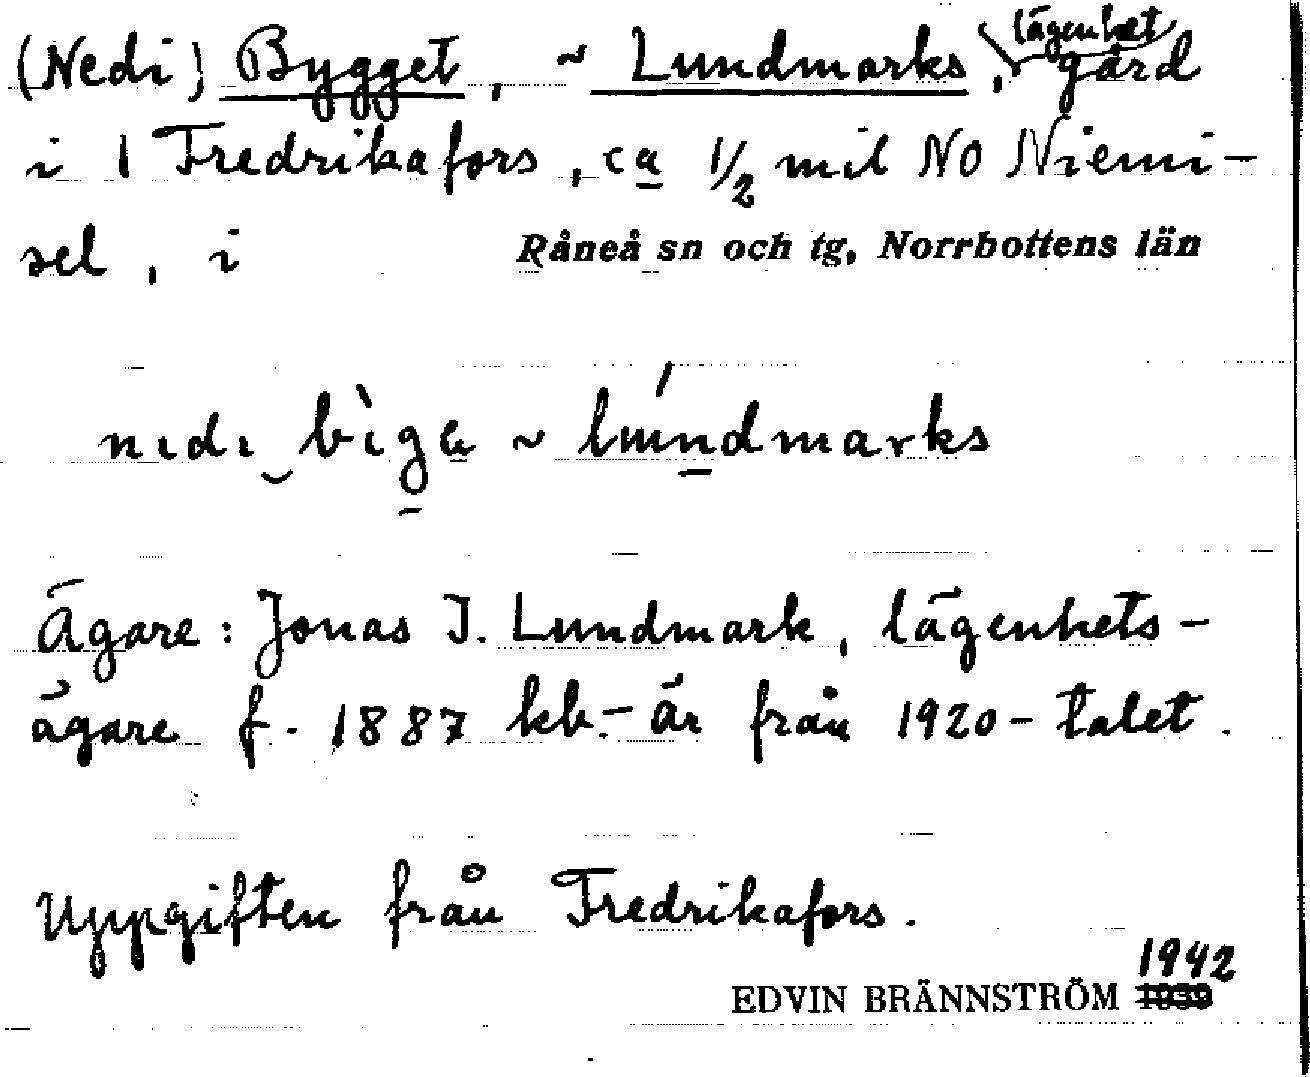 (Nedi) Bygget, ~ Lundmarks, lägenhet gård
i 1 Fredrikafors, ca 1/2 mil NO Niemi-
sel, i Råneå sn och tg, Norrbottens län
nıdı bìga ~ lúndmarks
Ägare: Jonas J. Lundmark, lägenhets-
ägare f. 1887 kb. - är från 1920-talet.
Uppgiften från Fredrikafors.
1942
EDVIN BRÄNNSTRÖM 1939